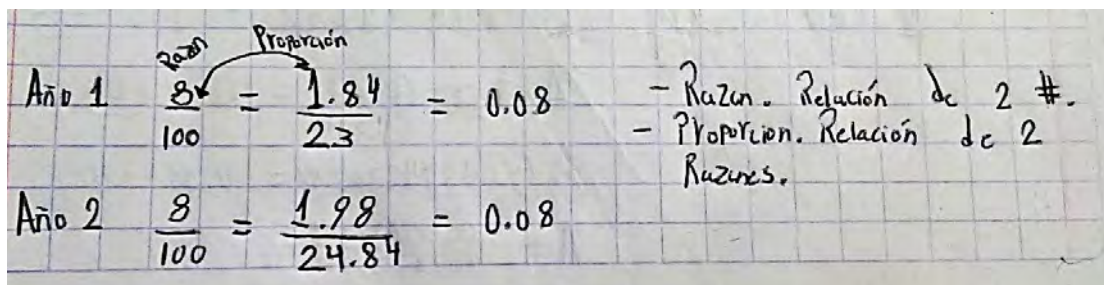 Razón Proporción
Año 1 8/100 = 1.84/23 = 0.08
- Razon. Relación de 2 #.
- Proporcion. Relación de 2
Razones.
Año 2 8/100 = 1.98/24.84 = 0.08